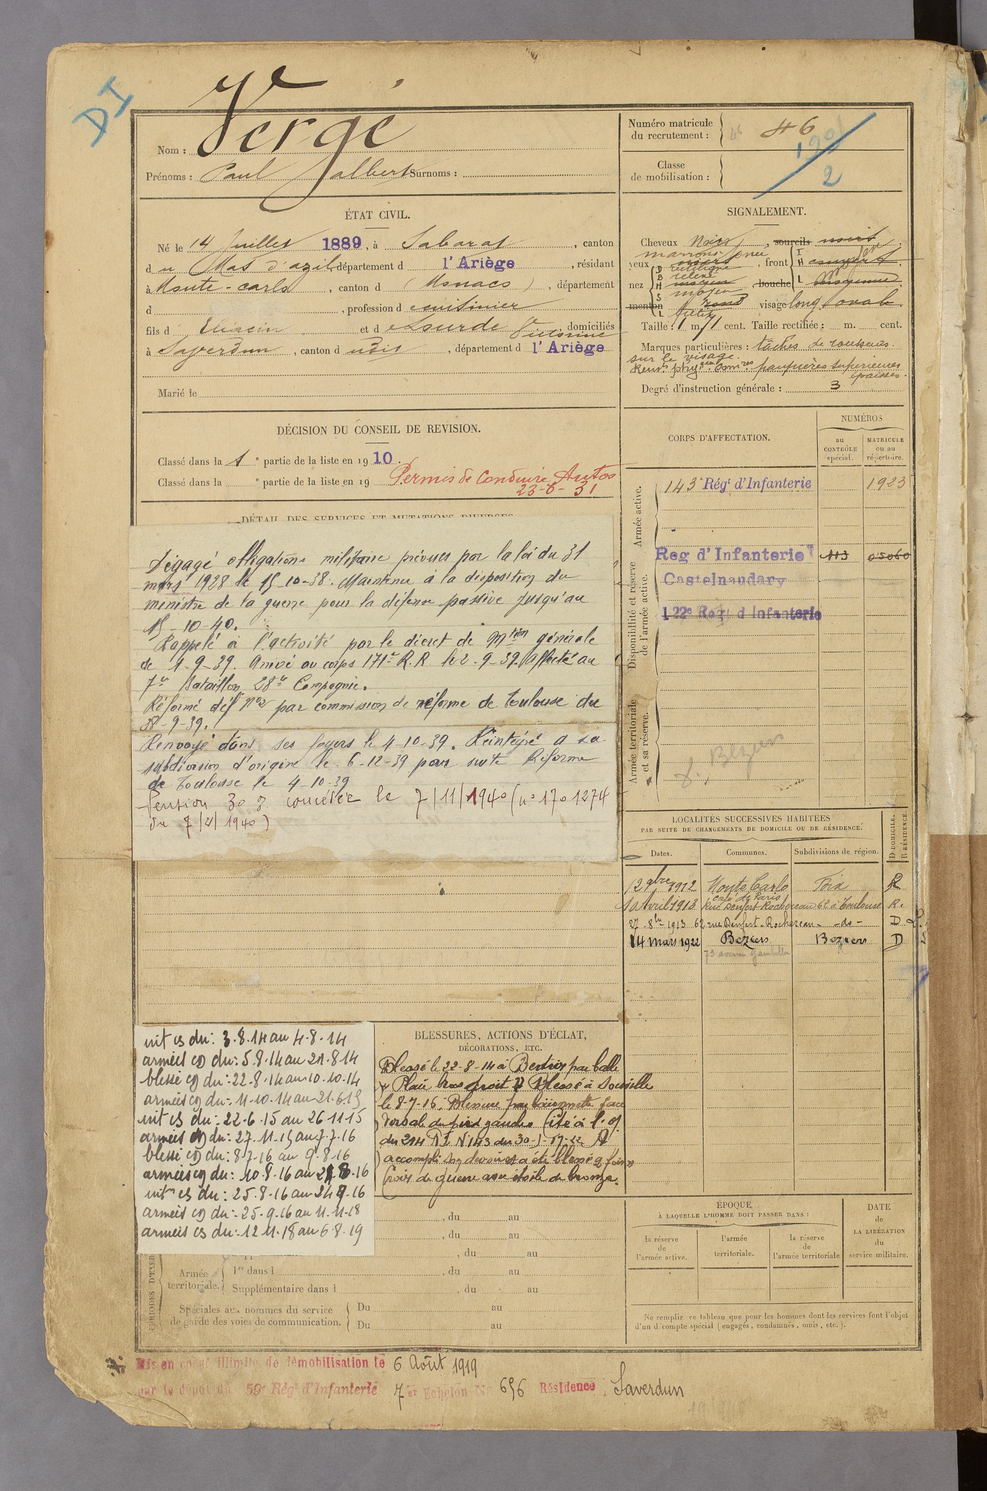 DI
Nom : Vergé
Prénoms : Paul Jalbert Surnoms :
Numéro matricule
du recrutement : 46
Classe
de mobilisation :
2
ÉTAT CIVIL.
Né le 14 Juillet 1889, à Sabarat, canton
du Mas d'azil, département d l'Ariège, résidant
à Monte-carlo, canton d (Monaco), département
d , profession d cuisinier
fils d et d Lourde Victorine, domiciliés
à Saverdun, canton d udit, département d l'Ariège
Marié le
SIGNALEMENT.
Cheveux Noirs, sourcils noirs
yeux marrons, front
nez , bouche moyenne
menton rond visage long ovale
Taille : 1 m. 71 cent. Taille rectifiée : m. cent.
Marques particulières : tâches de rousseurs
sur le visage.
paupières supérieures
épaisses.
Degré d'instruction générale : 3
DÉCISION DU CONSEIL DE REVISION.
Classé dans la 1 e partie de la liste en 1910.
Classé dans la e partie de la liste en 19
Permis de Conduire Autos
23-6-31
DÉTAIL DES SERVICES ET MUTATIONS DIVERSES
Dégagé obligations militaire prévues par la loi du 31
mars 1928 le 15-10-38. Maintenu à la disposition du
ministre de la guerre pour la défense passive jusqu'au
15-10-40.
Rappelé à l'activité par le décret de Mtion générale
de 1-9-39. Arrivé au corps 171e R.R le 2-9-39. Affecté au
7e Bataillon 28e Compagnie.
Réformé déf Nº2 par commission de réforme de Toulouse du
-9-39.
Renvoyé dans ses foyers le 4-10-39. Réintégré à sa
subdivision d'origine le 6-12-39 pour suite Réforme
de Toulouse le 4-10-39
Pension 30 % concédée le 7/11/1940 (nº 1701274
du 7/11/1940)
CORPS D'AFFECTATION.
NUMÉROS
AU
CONTRÔLE
spécial.
MATRICULE
ou au
répertoire.
Armée active.
143e Régt d'Infanterie 1923
Disponibilité et réserve
de l'armée active.
Reg d'Infanterie 113 05060
Castelnaudary
122e Reg d Infanterie
Armée territoriale
et sa réserve.
Béziers
LOCALITÉS SUCCESSIVES HABITÉES
PAR SUITE DE CHANGEMENTS DE DOMICILE OU DE RÉSIDENCE.
Dates. Communes. Subdivisions de région. D DOMICILE. R RÉSIDENCE.
12 9bre 1912 Monte Carlo Foix R
café de Paris
10 Avril 1913 Rue Denfert-Rochereau 62 à Toulouse R.
27 8bre 1913 62 rue Denfert-Rochereau - do -
14 Mars 1922 Beziers Beziers D
73 avenue Gambetta
int cs du : 3.8.14 au 4.8.14
armées cs du : 5.8.14 au 21.8.14
blessé cs du : 22.8.14 au 10.10.14
armées cs du : 11.10.14 au 21.6.15
int cs du : 22.6.15 au 26.11.15
armées cs du : 27.11.15 au 7.7.16
blessé cs du : 8.7.16 au 9.8.16
armées cs du : 10.8.16 au 24.8.16
int cs du : 25.8.16 au 24.9.16
armées cs du : 25.9.16 au 11.11.18
armées cs du : 12.11.18 au 6.8.19
BLESSURES, ACTIONS D'ÉCLAT,
DÉCORATIONS, ETC.
Blessé le 22-8-14 à Bertrix par balle
Plaie bras droit Blessé à
le 8-7-16. Blessure par baïonnette face
dorsale du pied gauche. Cité à l'O.
du 214 RI Nº143 du 30-
accompli son devoir et a été blessé 2 fois
Croix de guerre avec étoile de bronze.
, du au
, du au
, du au
Armée
territoriale.
1re dans l , du au
Supplémentaire dans l , du au
Spéciales aux hommes du service
de garde des voies de communication.
Du au
Du au
ÉPOQUE
À LAQUELLE L'HOMME DOIT PASSER DANS :
la réserve
de
l'armée active.
l'armée
territoriale.
la réserve
de
l'armée territoriale
DATE
de
LA LIBÉRATION
du
service militaire.
Ne remplir ce tableau que pour les hommes dont les services font l'objet
d'un décompte spécial (engagés, condamnés, omis, etc.).
Mis en congé illimité de démobilisation le 6 Août 1919
par le dépôt du 59e Régt d'Infanterie 7e Echelon No 656 Résidence Saverdun